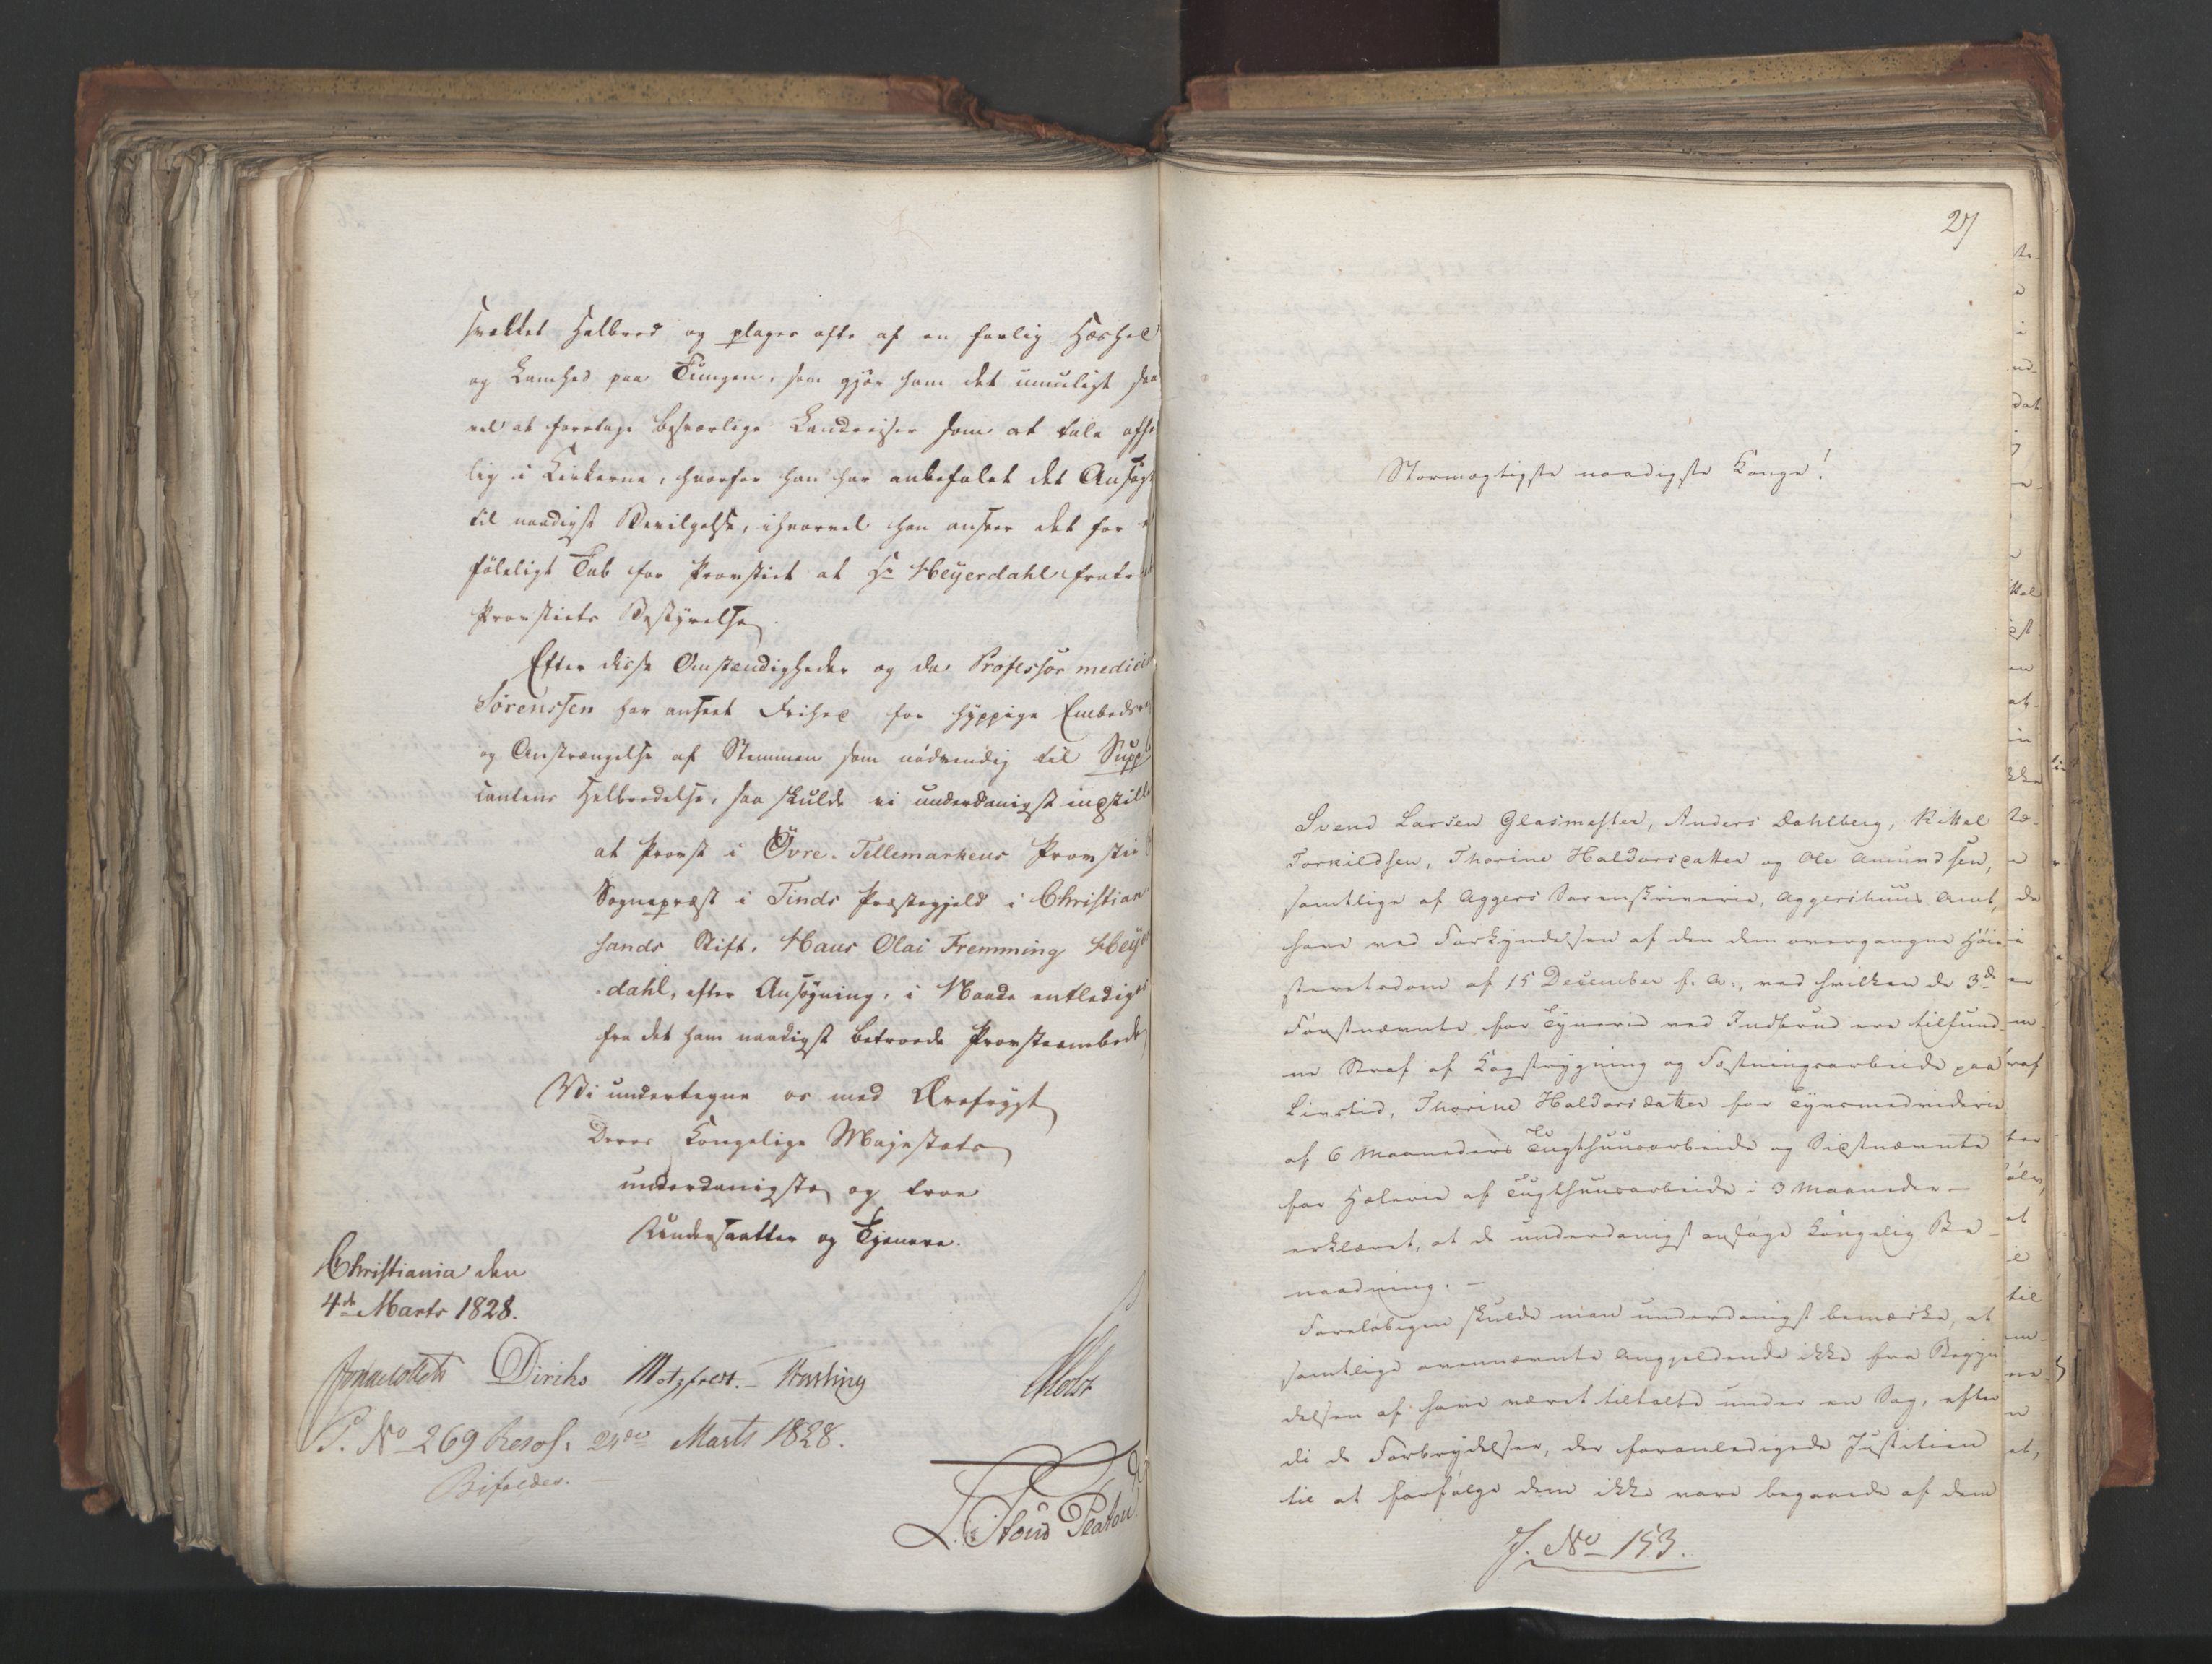 svækket Helbred og plages ofte af en farlig Hæshed
og Lamhed paa Tungen, som gjør ham det umuligt saa
vel at foretage besværlige Landreiser som at tale offent
lig i Kirkerne, hvorfor han har anbefalet det Ansøgte
til naadigst Bevilgelse, ihvorvel han anseer det for et
føleligt Tab for Provstiet at Hr Heyerdahl fratræder
Provstiets Bestyrelse.
Efter disse Omstændigheder og da Professor medicin
Sørenssen har anseet Frihed for hyppige Embedsrei
og Anstrængelse af Stemmen som nødvendig til Suppli
cantens Helbredelse, saa skulde vi underdanigst indstille
at Provst i Övre-Tellemarkens Provstie
Sognepræst i Tinds Præstegjeld i Christian
sands Stift, Hans Olai Fremming Heyer
-dahl, efter Ansøgning, i Naade entlediges
fra det ham naadigst betroede Provsteembede
Vi undertegne os med Ærefrygt
Deres Kongelige Majestæts
underdanigste og troe
Undersaatter og Tjenere.
Christiania den
4de Marts 1828.
Diriks Motzfeldt. Holst
P. No 269 Resol: 24de Marts 1828.
Bifaldes.
L. Stoud Platou
27
Stormægtigste naadigste Konge!
Svend Larsen Glasmester, Anders Dahlberg, Kittel
Torkildsen, Thorine Haldorsdatter og Ole Amundsen,
samtlige af Aggers Sorenskriverie, Aggershuus Amt,
have ved Forkyndelsen af den dem overgangne Høie
steretsdom af 15 December f. A., ved hvilken de 3de
Førstnævnte for Tyverie ved Indbrud ere tilfund
ne Straf af Kagstrygning og Fæstningsarbeide paa
Livstid, Thorine Haldorsdatter for Tyvsmedviderie
af 6 Maaneders Tugthuusarbeide og Sidstnævnte
for Hælerie af Tugthuusarbeide i 3 Maaneder –
erklæret, at de underdanigst ansøge Kongelig Be
naadning. –
Foreløbigen skulde man underdanigst bemærke, at
samtlige ovennævnte Angjeldende ikke fra Begyn
delsen af have været tiltalte under en Sag, efter
di de Forbrydelser, der foranledigede Justitien
til at forfølge dem ikke vare begaaede af dem
J. No 153.